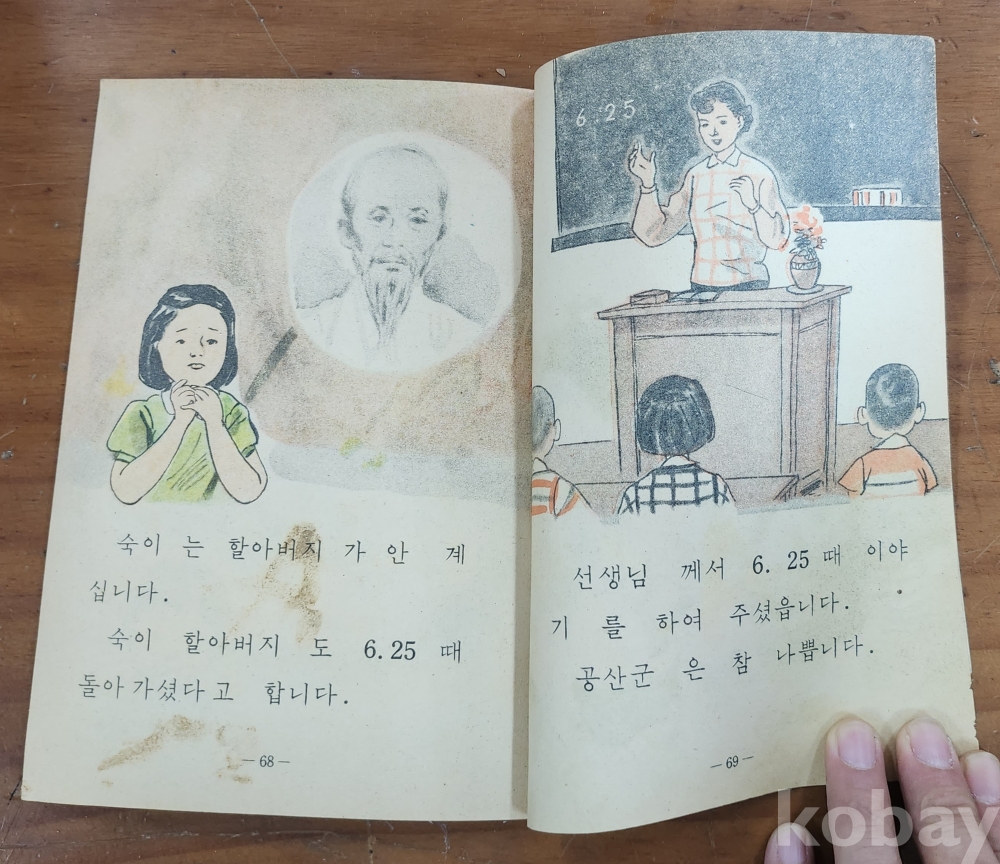 숙이 는 할아버지 가 안 계
십니다.
숙이 할아버지 도 6.25 때
돌아가셨다고 합니다.
—68—
6.25
선생님 께서 6. 25 때 이야
기 를 하여 주셨읍니다.
공산군 은 참 나쁩니다.
—69—
kobay